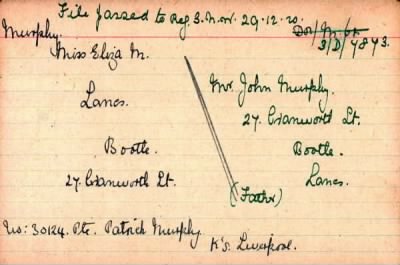 File passed to Reg 3. Nov. 29.12.20.
Dos/M/
3/D/4843.
Murphy.
Miss Eliza M.
Lancs.
Bootle.
27. Cranworth St.
Mr. John Murphy.
27. Cranworth St.
Bootle.
Lancs.
(Father)
No: 30124. Pte. Patrick Murphy
K's Liverpool.